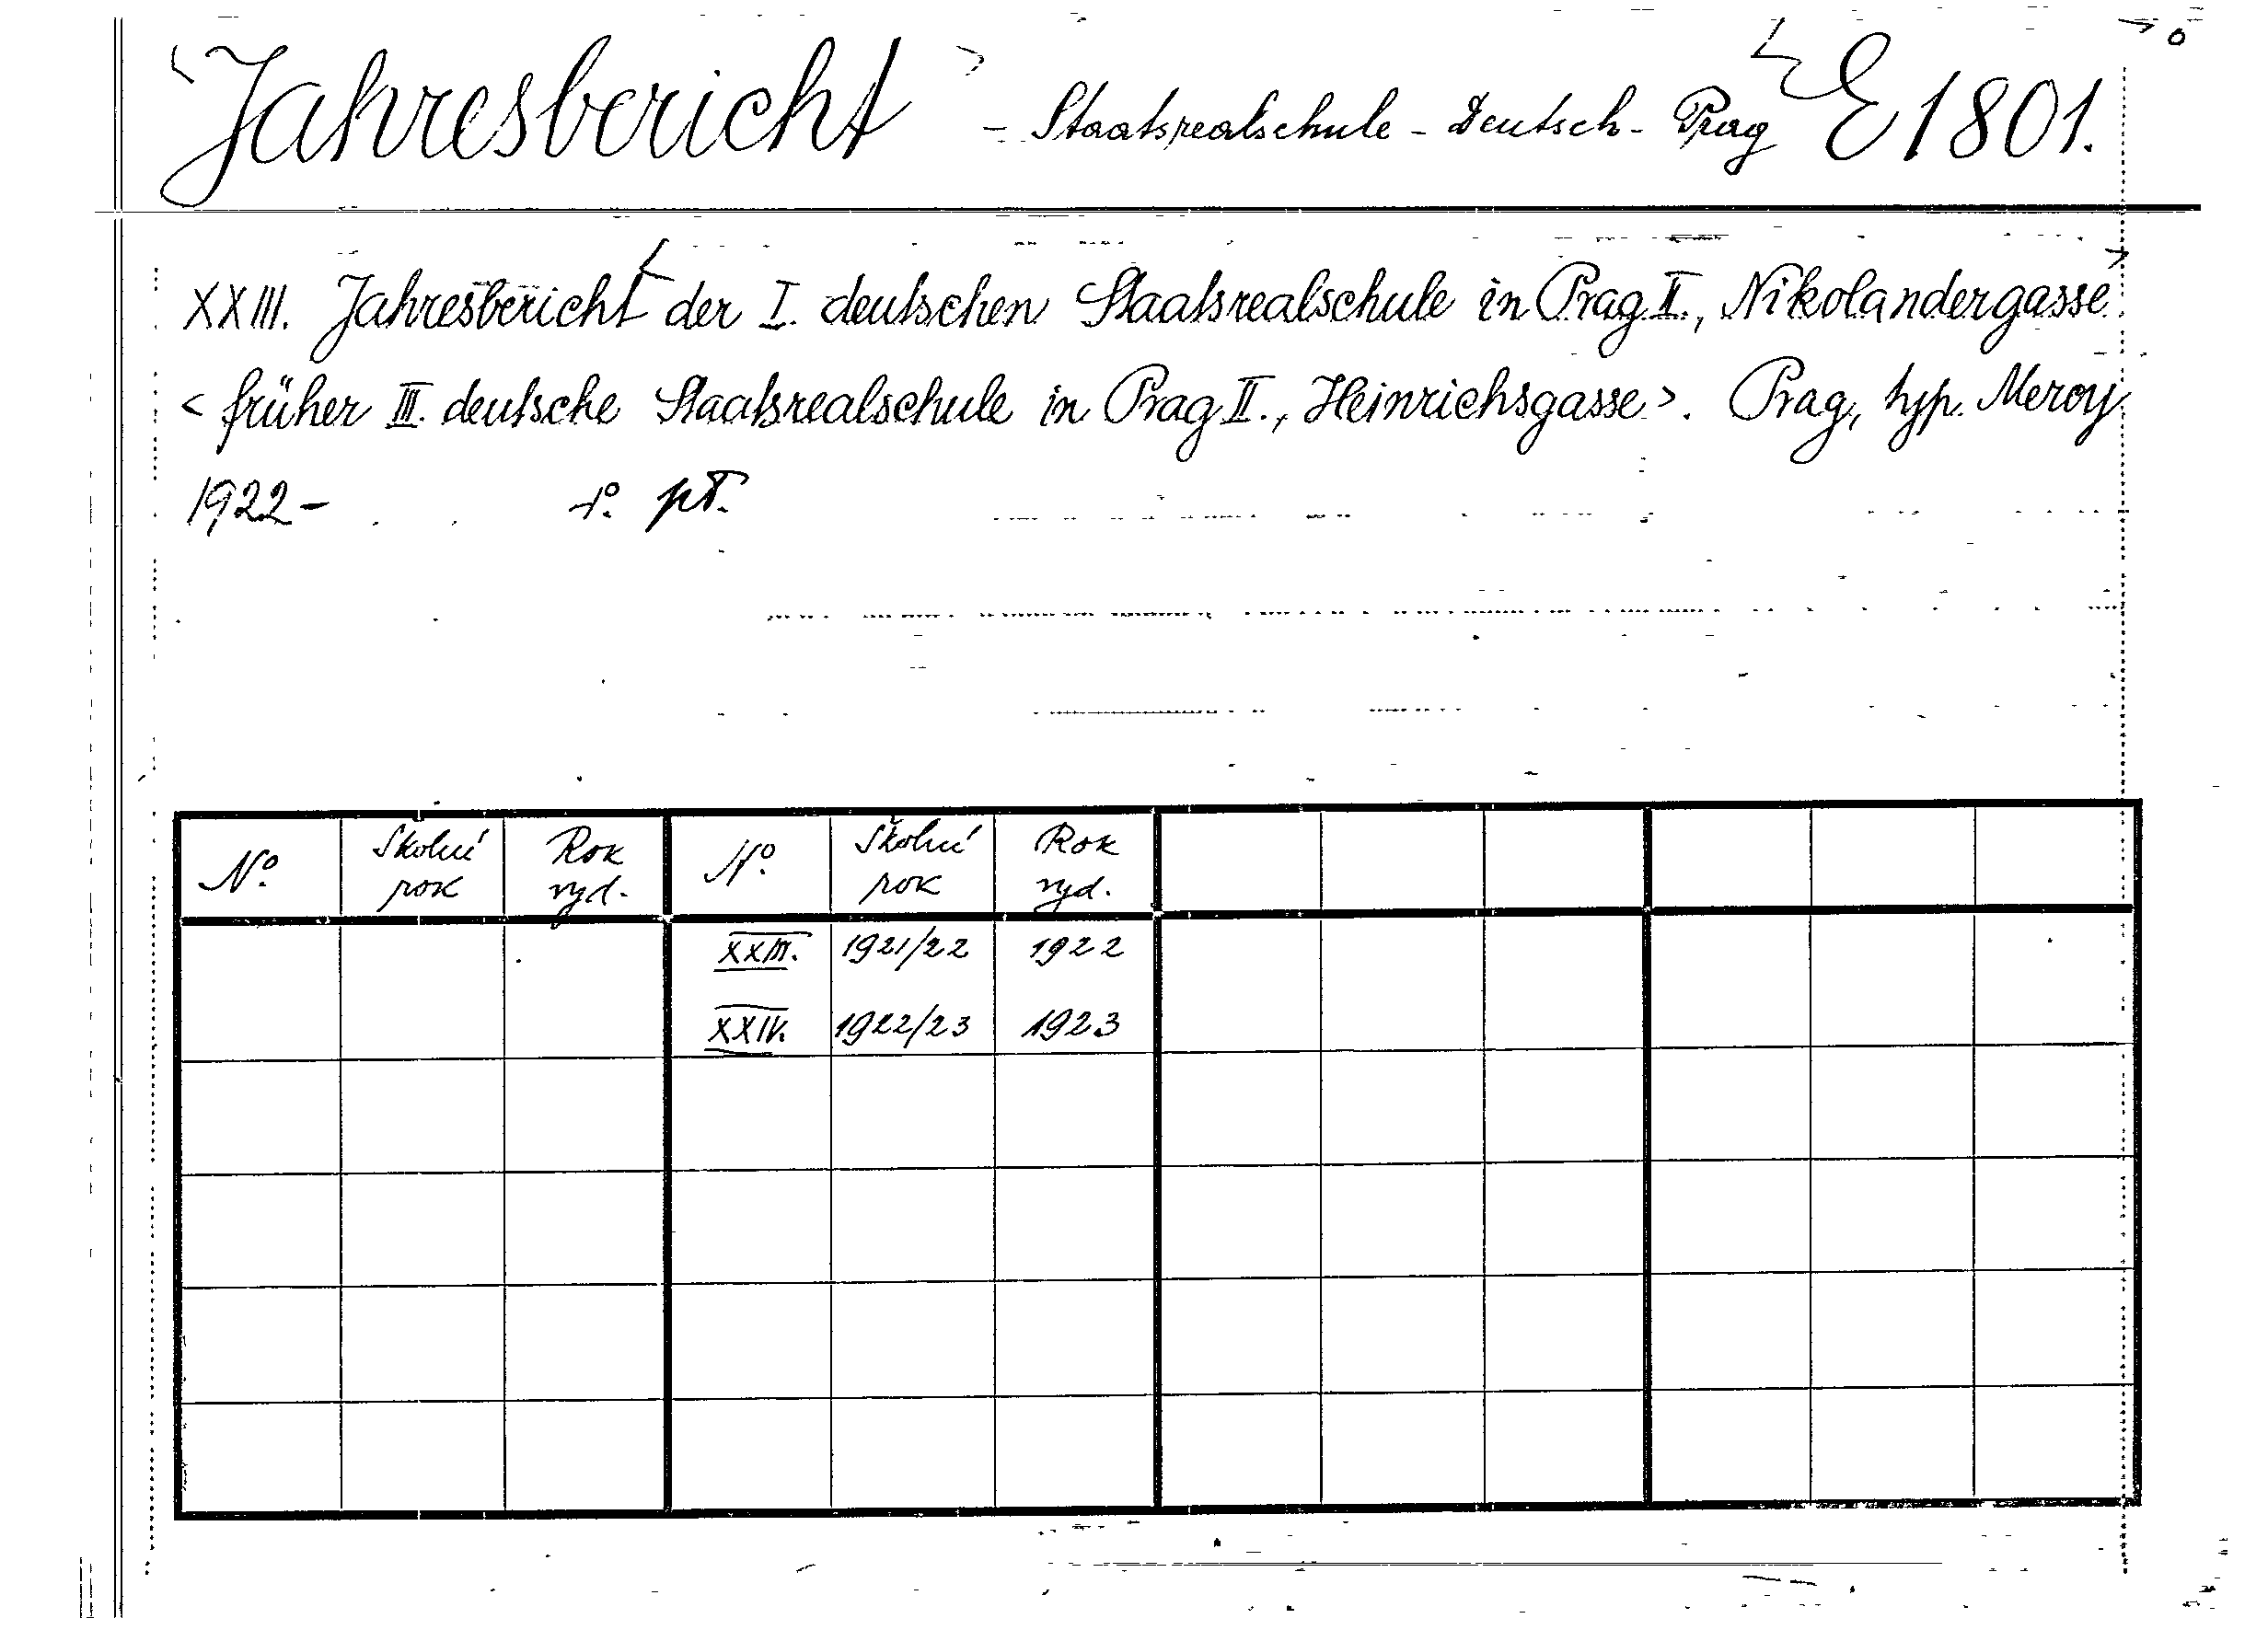 <Jahresbericht> - Staatsrealschule - Deutsch - Prag E 1801.
XXIII. Jahresbericht der I. deutschen Staatsrealschule in Prag II., Nikolandergasse
<früher III. deutsche Staatsrealschule in Prag II., Heinrichsgasse>. Prag, typ. Mercy
1922- př.
Nº. Školní rok Rok vyd. Nº. Školní rok Rok vyd.
XXIII. 1921/22 1922
XXIV. 1922/23 1923